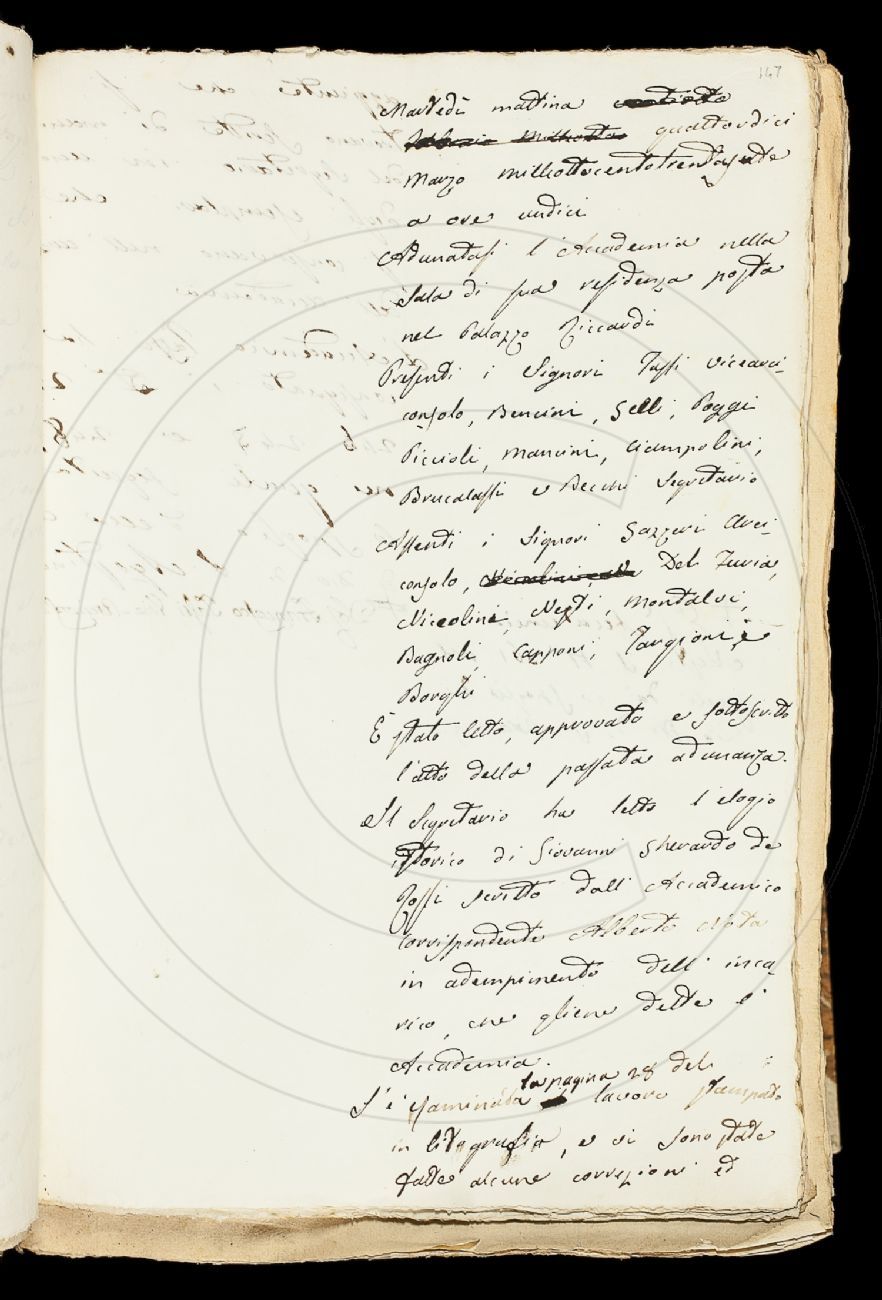 147
Martedì mattina ventiotto
febbraio milleotto quattordici
Marzo milleottocentotrentasette
a ore undici
Adunatasi l'Accademia nella
Sala di sua residenza posta
nel Palazzo Riccardi
Presenti i Signori Tassi Vicearci-
consolo, Bencini, Gelli, Poggi
Piccioli, Mancini, Ciampolini,
Brucalassi e Becchi Segretario
Assenti i Signori Gazzeri Arci-
consolo, Del Furia,
Niccolini, Nesti, Montalvi,
Bagnoli, Capponi, Targioni e
Borghi
È stato letto, approvato e sottoscritto
l'atto della passata adunanza.
Il Segretario ha letto l'elogio
istorico di Giovanni Gherardo de
Rossi scritto dall'Accademico
corrispondente Alberto Nota
in adempimento dell'inca
rico, che gliene dette l'
Accademia.
la pagina 28 del
S'è esaminata lavoro stampato
in litografia, e vi sono state
fatte alcune correzioni ed